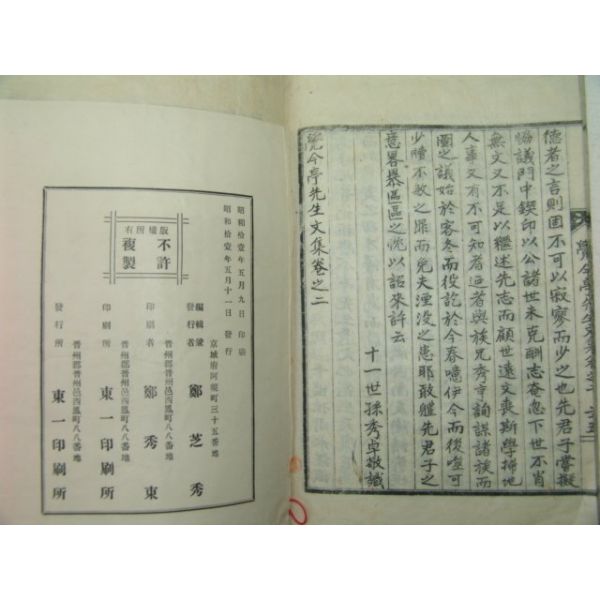 德者之言則固不可以寂寥而少之也先君子嘗擬
協議門中鋟印以公諸世未克酬志奄忽下世不肖
無文又不足以繼述先志而顧世遠文喪斯學掃地
人事又有不可知者迺者與族兄秀亨詢謀諸族而
圖之議始於客冬而役訖於今春噫伊今而後庶可
少贖不敏之罪而免夫湮沒之患耶敢軆先君子之
意畧擧區區之忱以詔來許云
十一世孫秀卓敬識
覺今亭先生文集卷之二
昭和拾壹年五月九日印刷
昭和拾壹年五月十一日發行
版權所有
不許
複製
京城府阿峴町三十五番地
編輯兼
發行者 鄭芝秀
晋州郡晋州邑西鳳町八八番地
印刷者 鄭秀東
晋州郡晋州邑西鳳町八八番地
印刷所 東一印刷所
晋州郡晋州邑西鳳町八八番地
發行所 東一印刷所